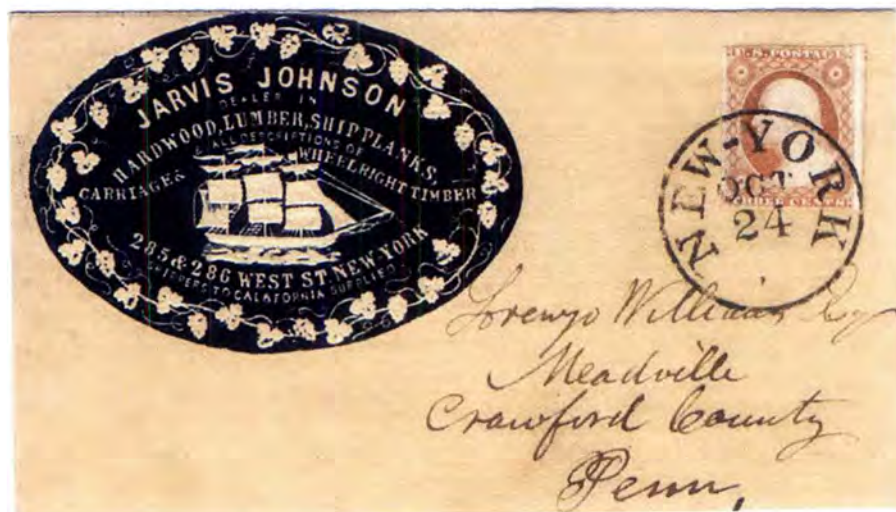 JARVIS JOHNSON
DEALER IN
HARDWOOD, LUMBER, SHIP PLANKS,
& ALL DESCRIPTIONS OF
CARRIAGE & WHEELRIGHT TIMBER
285 & 286 WEST ST. NEW-YORK
SHIPPERS TO CALAFORNIA SUPPLIED
U.S. POSTAGE
THREE CENTS
NEW-YORK
OCT
24
Lorenzo Williams Esq
Meadville
Crawford County
Penn,